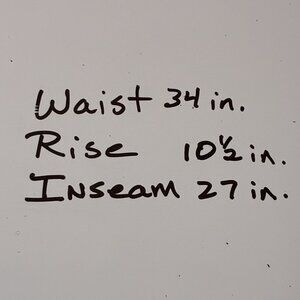 Waist 34 in.
Rise 10½ in.
Inseam 27 in.